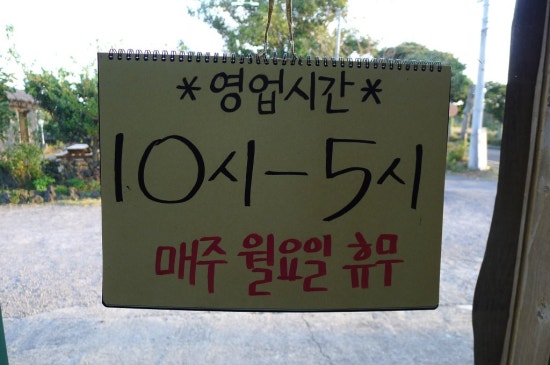 *영업시간*
10시-5시
매주 월요일 휴무